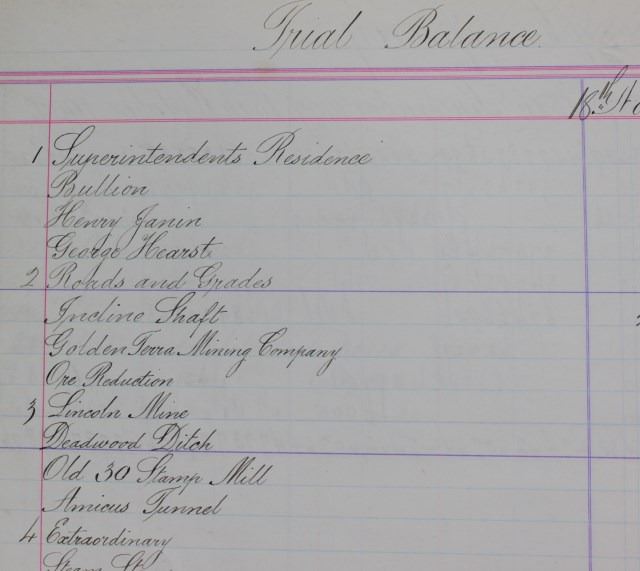 Trial Balance.
18th St
1 Superintendents Residence
Bullion
Henry Janin
George Hearst
2 Roads and Grades
Incline Shaft
Golden Terra Mining Company
Ore Reduction
3 Lincoln Mine
Deadwood Ditch
Old 30 Stamp Mill
Amicus Tunnel
4 Extraordinary
Steam